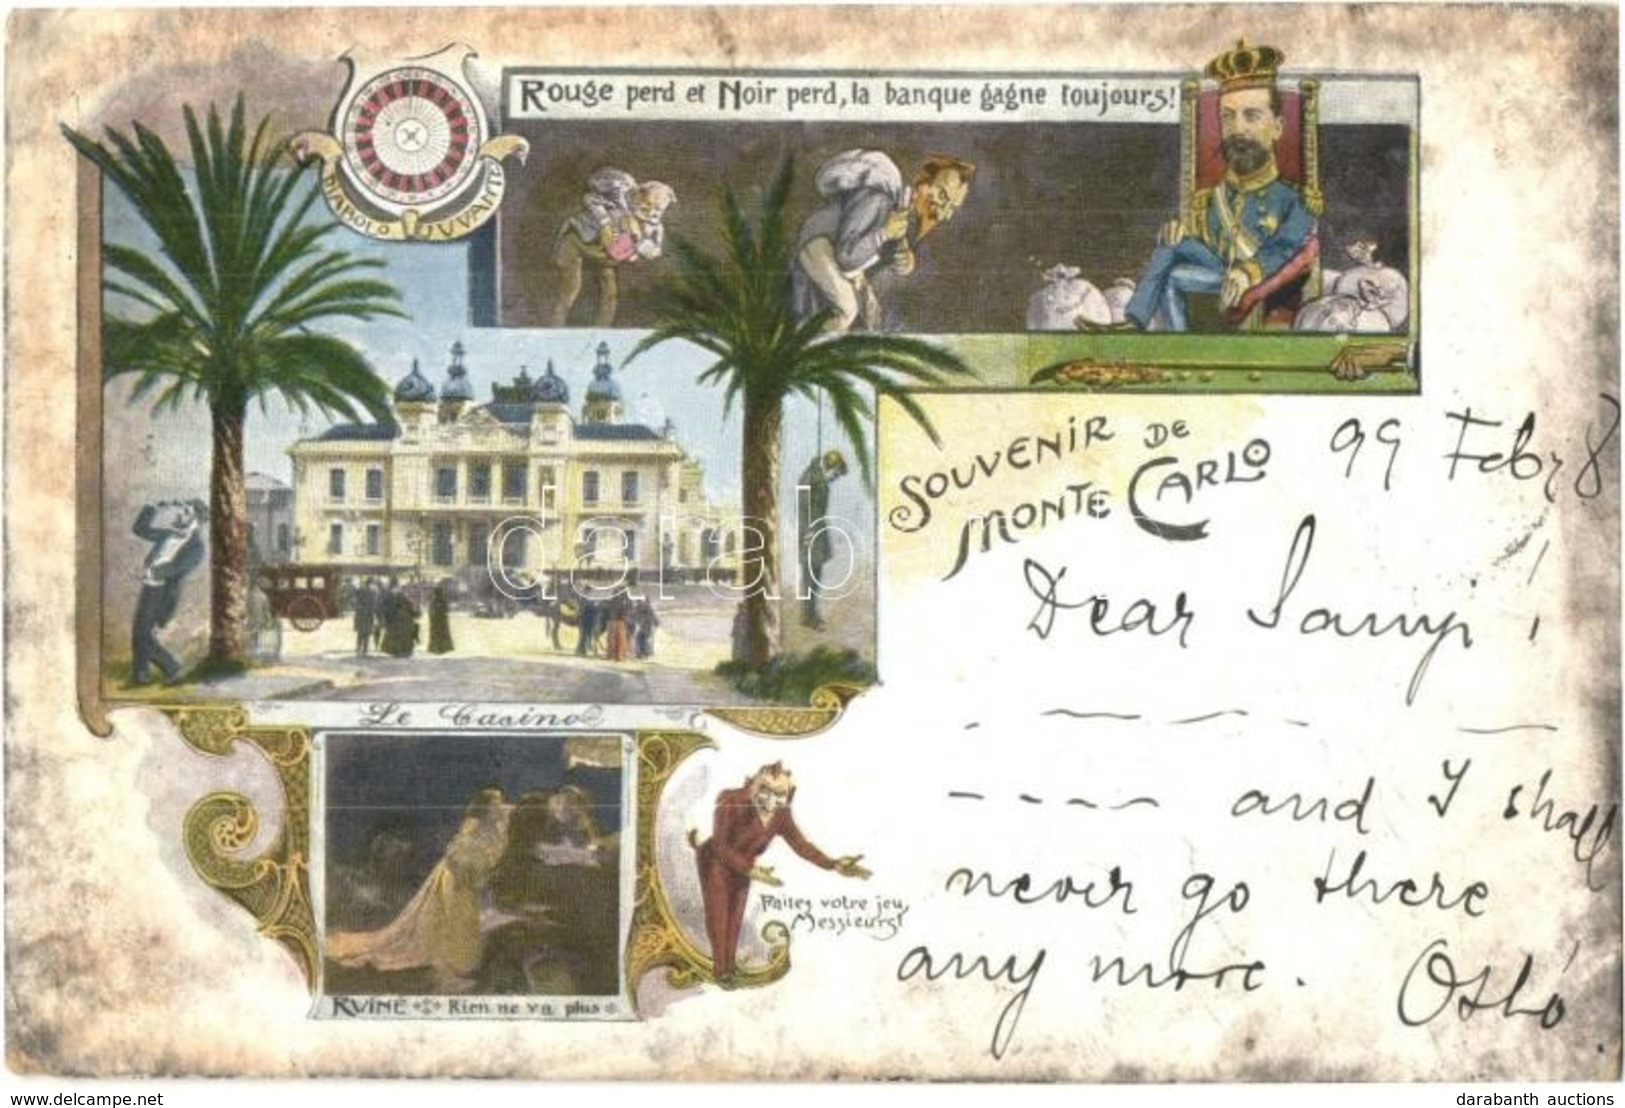 Rouge perd et Noir perd, la banque gagne toujours!
DIABOLO JUVANTE
SOUVENIR DE
MONTE CARLO
99 Febr 8
Dear Samyi!
and I shall
never go there
any more.
Le Casino
Faites votre jeu,
Messieurs!
RUINE Rien ne va plus
darab
www.delcampe.net
darabanth auctions